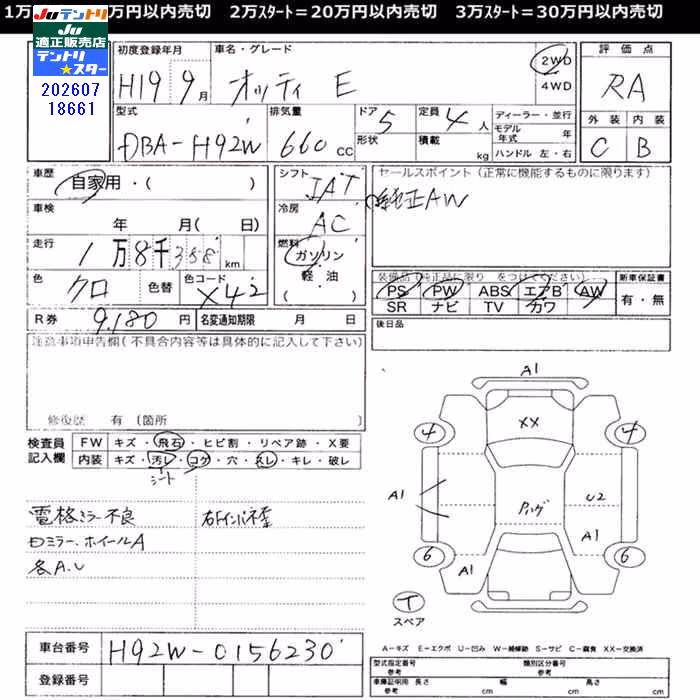 1万 万円以内売切 2万スタート＝20万円以内売切 3万スタート＝30万円以内売切
Juテントリ
Ju
適正販売店
テントリ
★スター
202607
18661
初度登録年月 車名・グレード 評価点
H19 9月 オッティ E 2WD 4WD RA
型式 排気量 ドア 定員 ディーラー・並行 外装 内装
DBA-H92W 660 CC 5 4人 モデル年式 年
形状 積載 kg ハンドル 左・右 C B
車歴 シフト セールスポイント（正常に機能するものに限ります）
自家用・（ ） IAT 純正AW
車検 冷房
年 月（ 日） AC
走行 燃料
1万8千358km ガソリン 軽・油 （ ）
装備品（純正品に限り をつけてください） 新車保証書
色 クロ 色替 色コード X42 PS PW ABS エアB AW 有・無
SR ナビ TV カワ
R券 9,180円 名変通知期限 月 日 後日品
注意事項申告欄（不具合内容等は具体的に記入して下さい）
修復歴 有（箇所
検査員記入欄 FW キズ・飛石・ヒビ割・リペア跡・X要
内装 キズ・汚レ・コゲ・穴・スレ・キレ・破レ
シート
電格ミラー不良
ロミラー、ホイールA
各A.U
A1
XX
4 4
A1 U2
A1
A1
6 6
T
スペア
車台番号 H92W-0156230
登録番号
A－キズ E－エクボ U－凹み W－補修跡 S－サビ C－腐食 XX－交換済
型式指定番号 類別区分番号
参考 参考
車庫証明用 長さ 幅 高さ
参考 cm cm cm